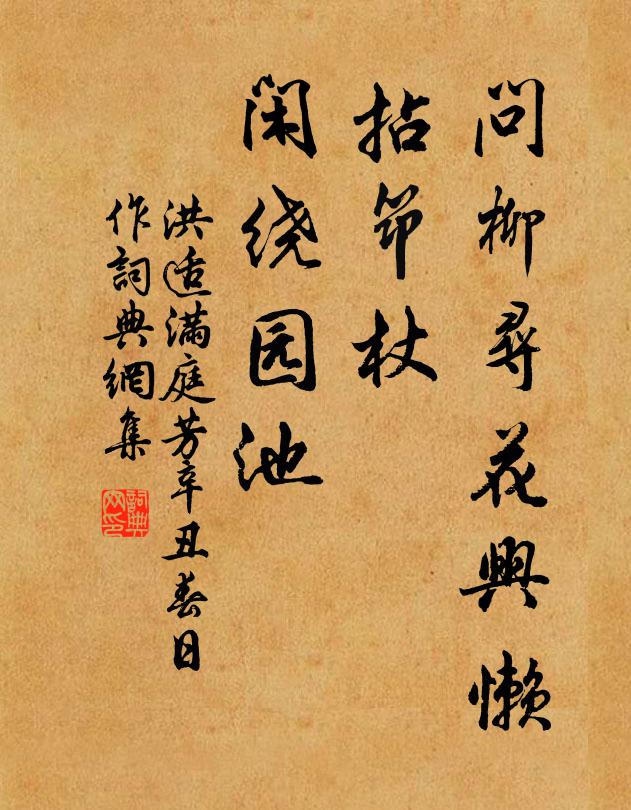 问柳尋花興懒
拈筇杖
闲绕园池
洪适满庭芳辛丑春日
作詞典網集
詞典
网印